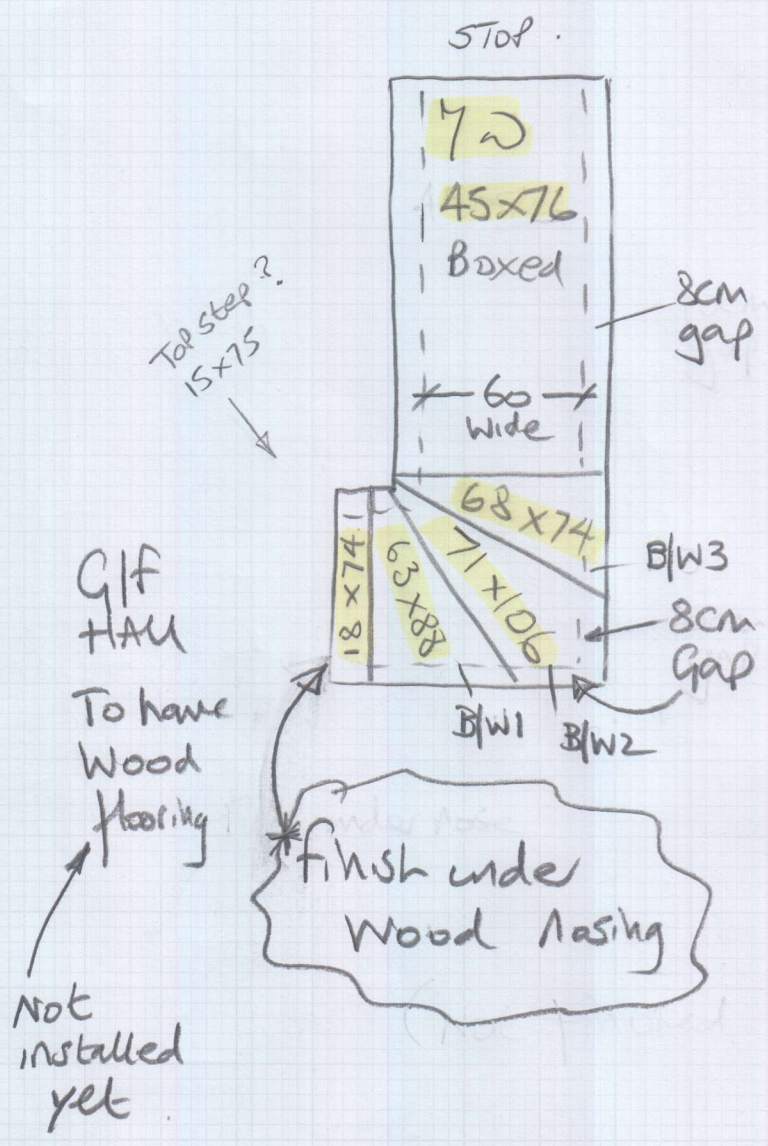 STOP.
7W
45x76
Boxed
8cm
gap
Top step?
15x75
60
wide
68x74
71x106
63x88
18x74
B/W3
8cm
Gap
B/W1
B/W2
G/F
HALL
To have
Wood
flooring
Not
installed
yet.
finish under
Wood nosing